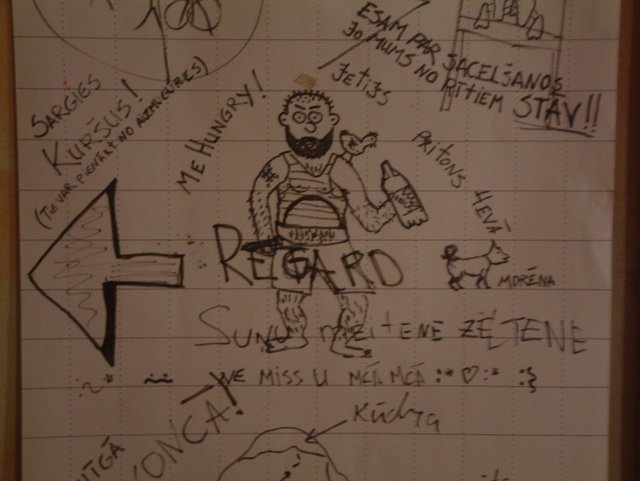 ESAM PAR JACELŠANOS
JO MUMS NO RĪTIEM STĀV!!
JETIJS
SARGIES
KURŠUS!
(TIE VAR PIENĀKT NO AIZMUGURES)
ME HUNGRY!
PRITONS HEVĀ
REGARD
MORĒNA
SUŅU MEITENE ZĒLTENE
WE MISS U MČĀ MČĀ :*♡:* :}
KONCĀ!
Kūdra